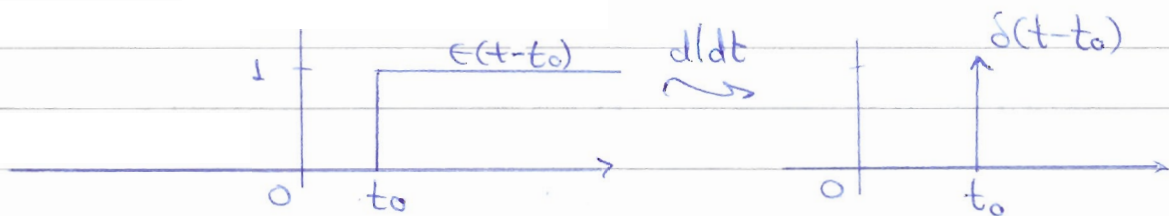 1 ϵ(t-t₀) d/dt δ(t-t₀)
0 t₀ 0 t₀